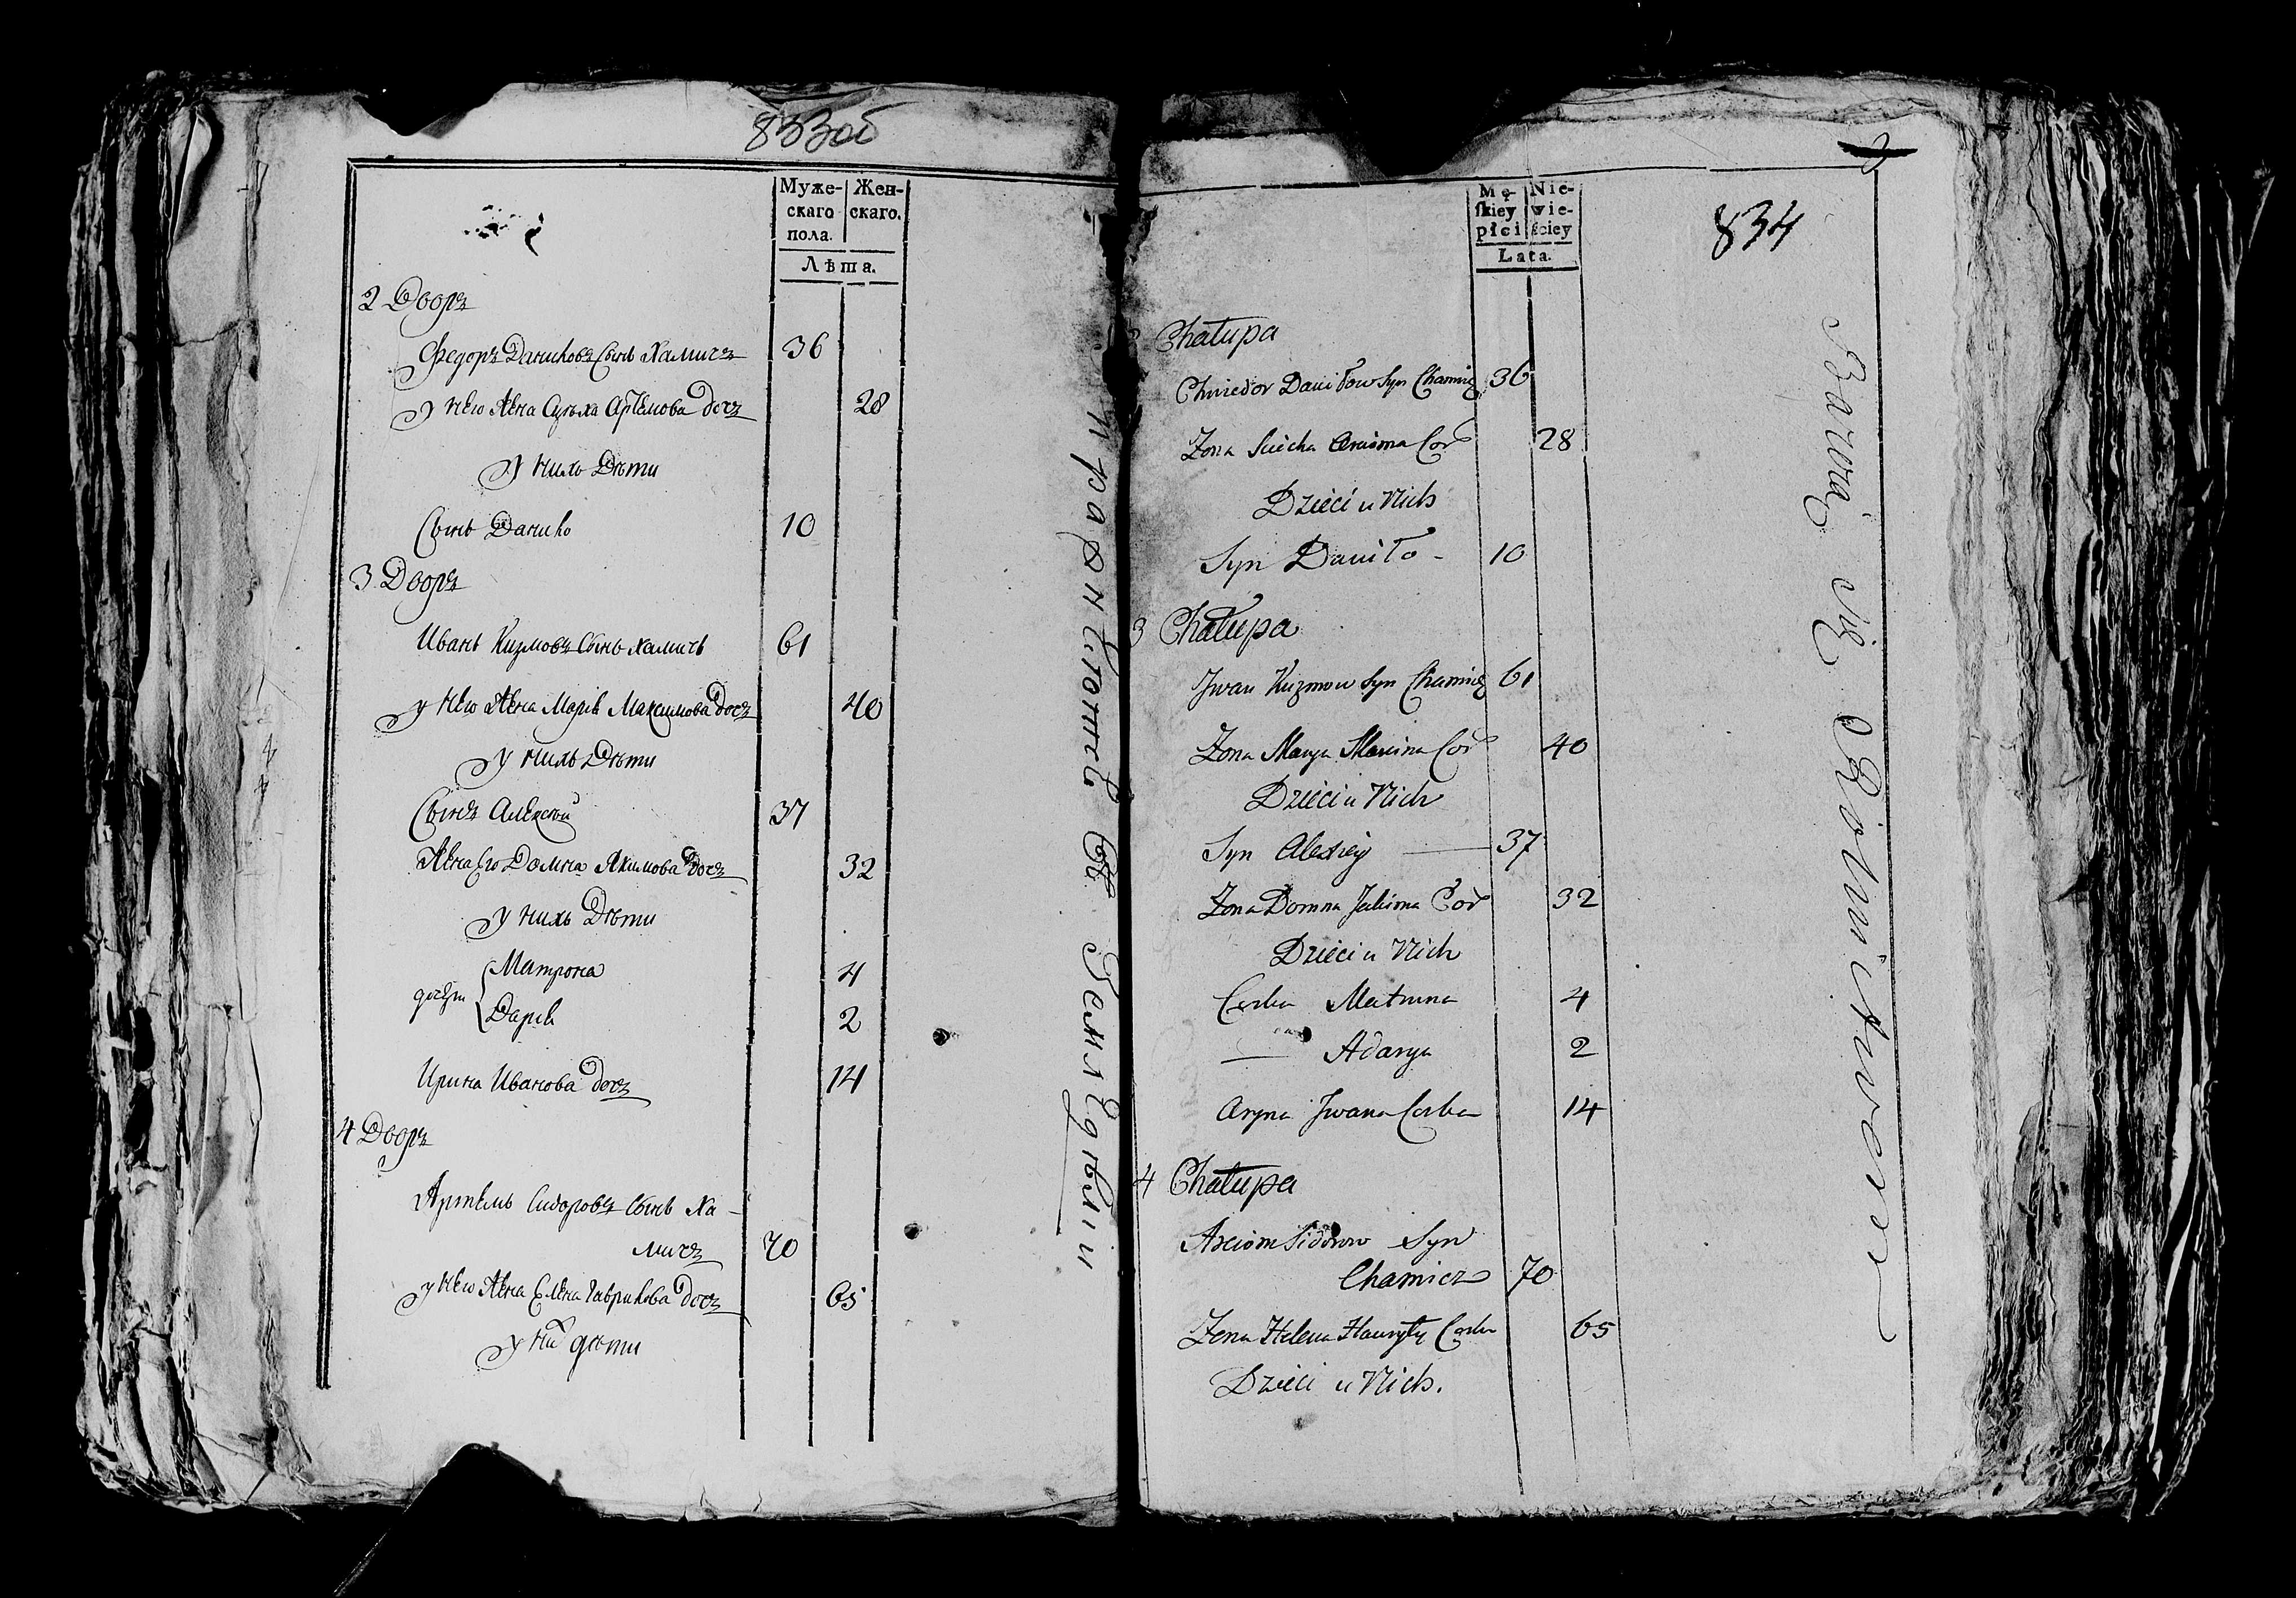 833об
Муже-
скаго
пола.
Жен-
скаго.
Лѣта.
2 Дворъ
Федоръ Даниловъ сынъ Хамичъ 36
у него жена Суѣха Артемова дочъ 28
у нихъ дѣти
Сынъ Данило 10
3 Дворъ
Иванъ Кузмовъ сынъ Хамичъ 61
у него жена Марія Максимова дочъ 40
у нихъ дѣти
Сынъ Алексѣй 37
Жена его Домна Якимова дочъ 32
у нихъ дѣти
дочери Матрона 4
Дарія 2
Ирина Иванова дочъ 14
4 Дворъ
Артемъ Сидоровъ сынъ Ха-
мичъ 70
у него жена Елена Гаврилова дочъ 65
у них дѣти
земледѣліи
834
Mę-
skiey
płci
Nie-
wie-
ściey
Lata.
Chałupa
Chwiedor Daniłow Syn Chamicz 36
Zona Suicha Arcioma Cor 28
Dzieci u Nich
Syn Daniło - 10
3 Chałupa
Jwan Kuzmow Syn Chamicz 61
Zona Marya Maxima Cor 40
Dzieci u Nich
Syn Alexiey 37
Zona Domna Jakima Cor 32
Dzieci u Nich
Corka Matruna 4
— Adarya 2
Aryna Jwana Corka 14
4 Chałupa
Arciom Sidorow Syn
Chamicz 70
Zona Helena Hauryły Corka 65
Dzieci u Nich.
Bawią się Rolnictwem